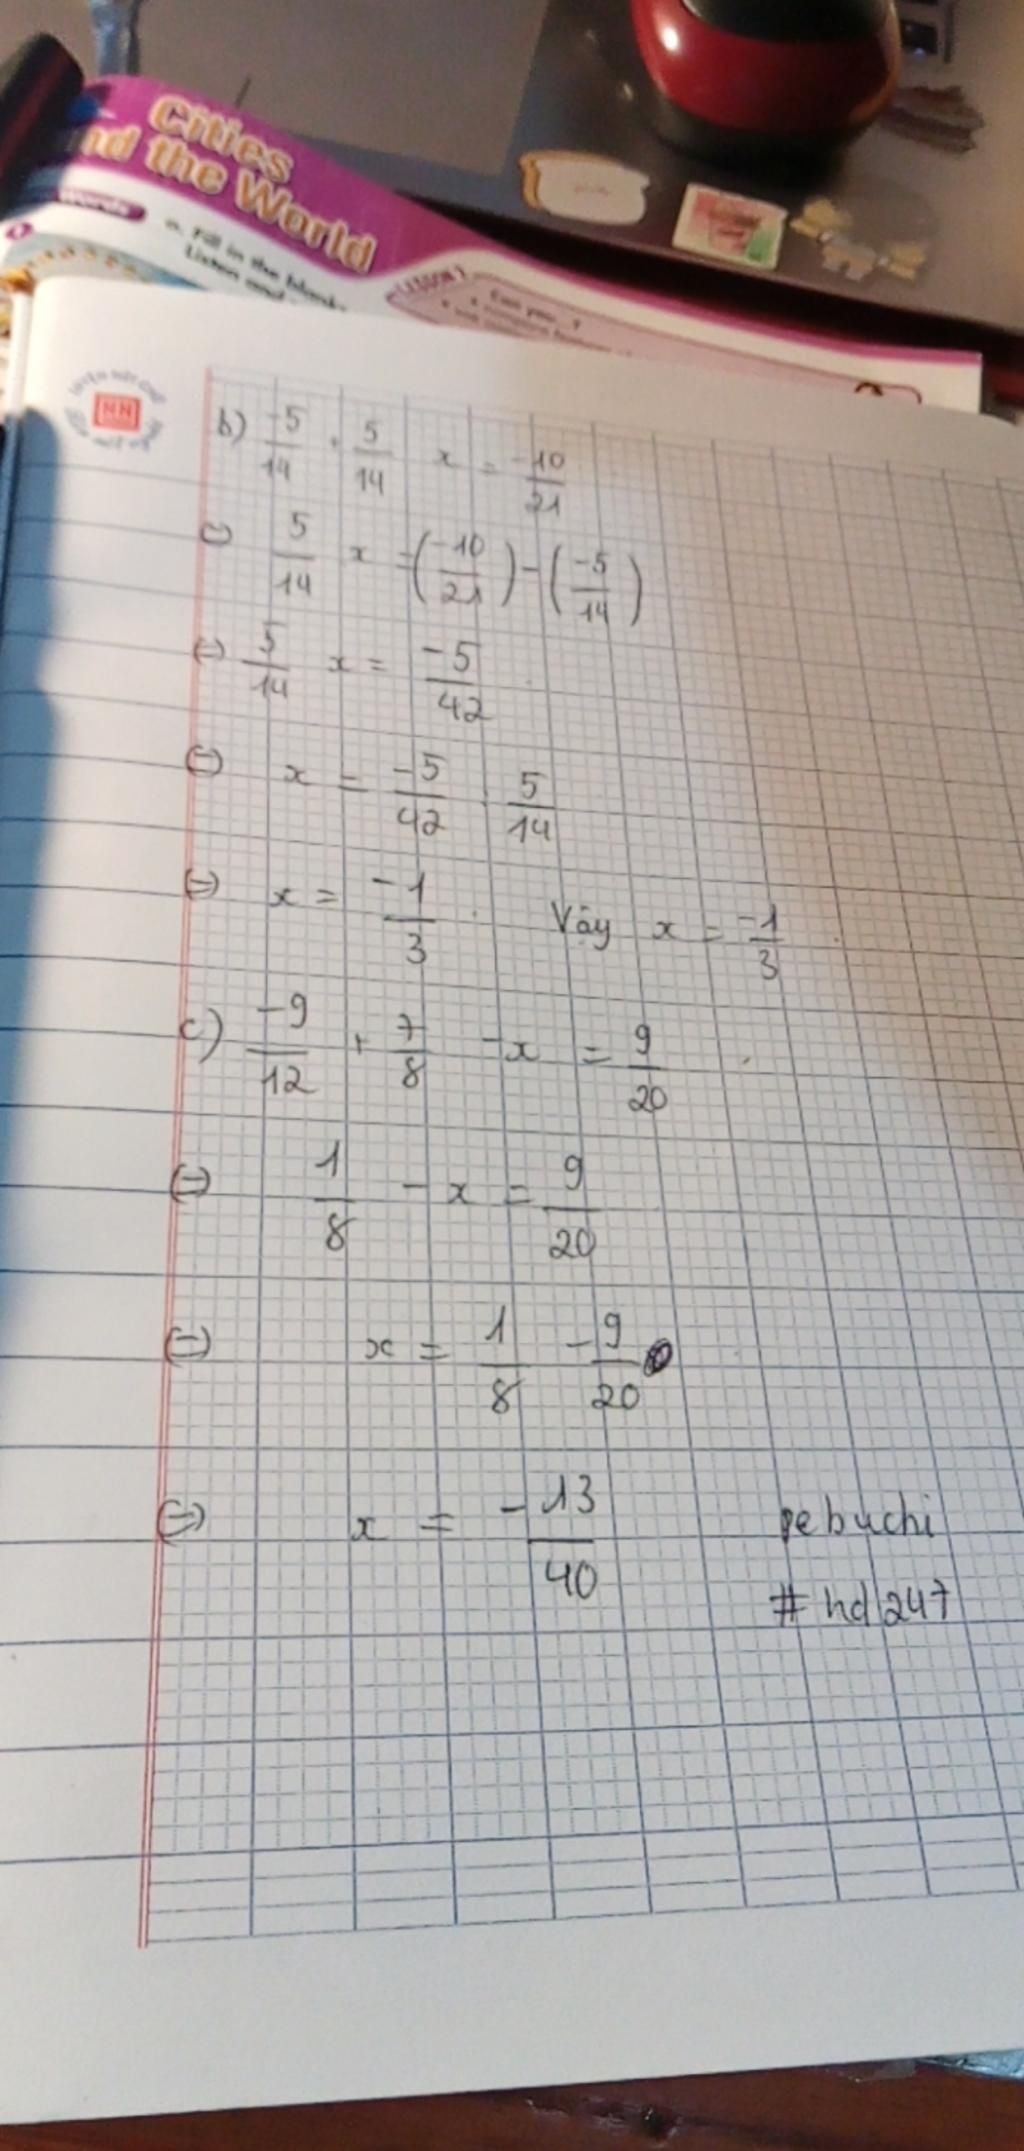 Cities
nd the World
Words
a. Fill in the blank
Listen and
LESSON 1
Can you...?
NN
b) -5/14 + 5/14 x = -10/21
(=) 5/14 x = (-10/21) - (-5/14)
(=) 5/14 x = -5/42
(=) x = -5/42 : 5/14
(=) x = -1/3 . Vậy x = -1/3 .
c) -9/12 + 7/8 - x = 9/20 .
(=) 1/8 - x = 9/20
(=) x = 1/8 - 9/20
(=) x = -13/40
pebuchi
# hd 247